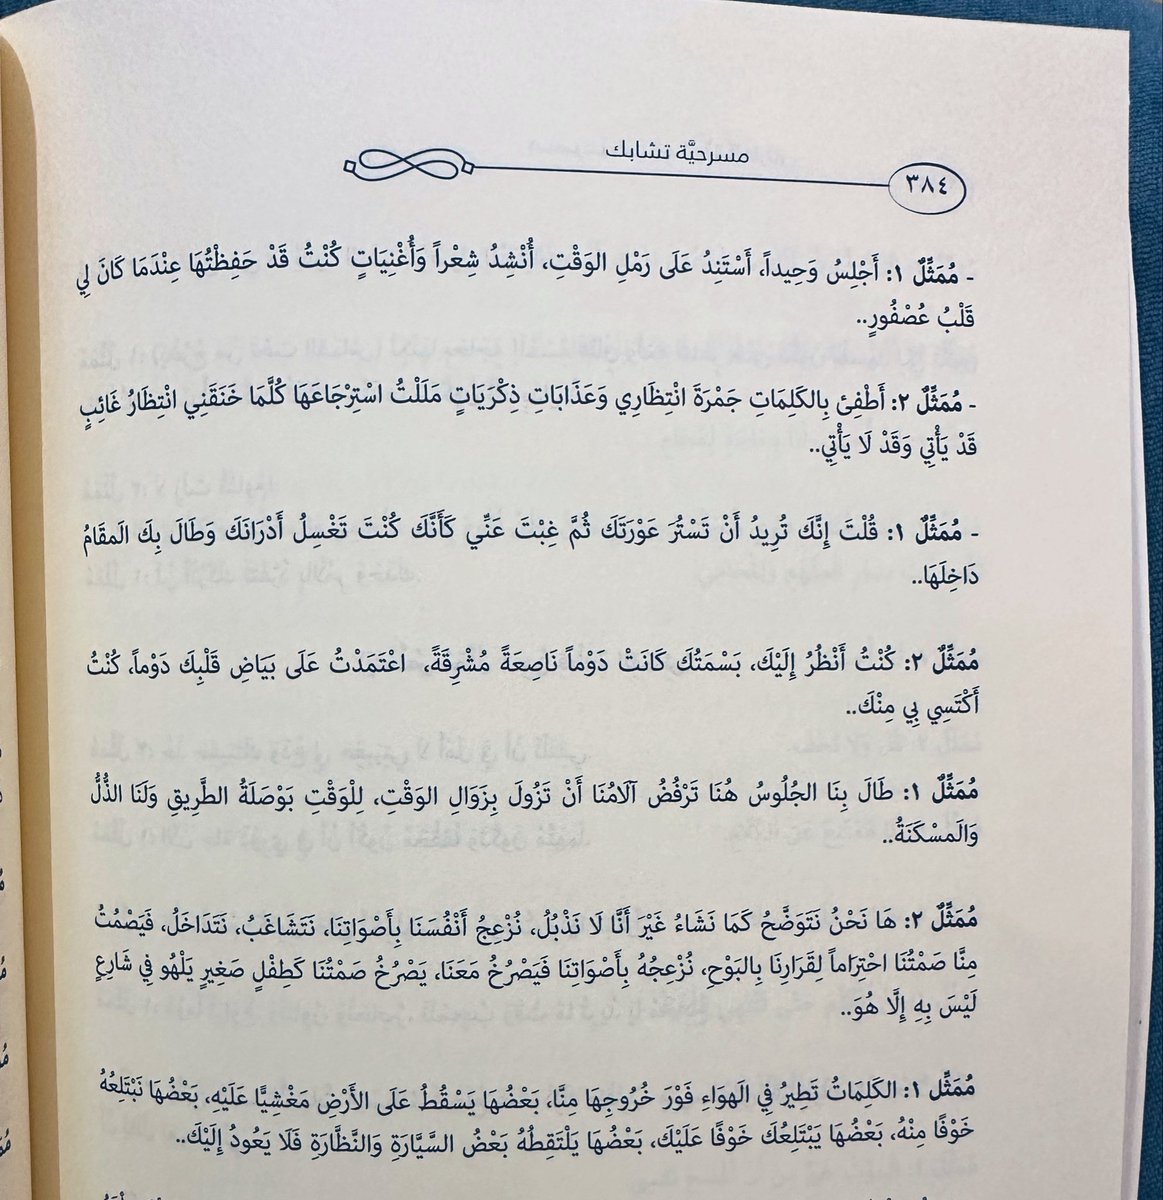 مسرحيَّة تشابك
٣٨٤
- مُمَثِّلٌ ١: أَجْلِسُ وَحِيداً، أَسْتَنِدُ عَلَى رَمْلِ الوَقْتِ، أُنْشِدُ شِعْراً وَأُغْنِيَاتٍ كُنْتُ قَدْ حَفِظْتُهَا عِنْدَمَا كَانَ لِي
قَلْبُ عُصْفُورٍ..
- مُمَثِّلٌ ٢: أَطْفِئُ بِالكَلِمَاتِ جَمْرَةَ انْتِظَارِي وَعَذَابَاتِ ذِكْرَيَاتٍ مَلَلْتُ اسْتِرْجَاعَهَا كُلَّمَا خَنَقَنِي انْتِظَارُ غَائِبٍ
قَدْ يَأْتِي وَقَدْ لَا يَأْتِي..
- مُمَثِّلٌ ١: قُلْتَ إِنَّكَ تُرِيدُ أَنْ تَسْتُرَ عَوْرَتَكَ ثُمَّ غِبْتَ عَنِّي كَأَنَّكَ كُنْتَ تَغْسِلُ أَدْرَانَكَ وَطَالَ بِكَ الَمقَامُ
دَاخِلَهَا..
مُمَثِّلٌ ٢: كُنْتُ أَنْظُرُ إِلَيْكَ، بَسْمَتُكَ كَانَتْ دَوْماً نَاصِعَةً مُشْرِقَةً، اعْتَمَدْتُ عَلَى بَيَاضِ قَلْبِكَ دَوْماً، كُنْتُ
أَكْتَسِي بِي مِنْكَ..
مُمَثِّلٌ ١: طَالَ بِنَا الجُلُوسُ هُنَا تَرْفُضُ آلَامُنَا أَنْ تَزُولَ بِزَوَالِ الوَقْتِ، لِلْوَقْتِ بَوْصَلَةُ الطَّرِيقِ وَلَنَا الذُّلُّ
وَالَمسْكَنَةُ..
مُمَثِّلٌ ٢: هَا نَحْنُ نَتَوَضَّحُ كَمَا نَشَاءُ غَيْرَ أَنَّا لَا نَذْبُلُ، نُزْعِجُ أَنْفُسَنَا بِأَصْوَاتِنَا، نَتَشَاغَبُ، نَتَدَاخَلُ، فَيَصْمُتُ
مِنَّا صَمْتُنَا احْتِرَاماً لِقَرَارِنَا بِالبَوْحِ، نُزْعِجُهُ بِأَصْوَاتِنَا فَيَصْرُخُ مَعَنَا، يَصْرُخُ صَمْتُنَا كَطِفْلٍ صَغِيرٍ يَلْهُو فِي شَارِعٍ
لَيْسَ بِهِ إِلَّا هُوَ..
مُمَثِّل ١: الكَلِمَاتُ تَطِيرُ فِي الَهوَاءِ فَوْرَ خُرُوجِهَا مِنَّا، بَعْضُهَا يَسْقُطُ عَلَى الأَرْضِ مَغْشِيًّا عَلَيْهِ، بَعْضُهَا نَبْتَلِعُهُ
خَوْفًا مِنْهُ، بَعْضُهَا يَبْتَلِعُكَ خَوْفًا عَلَيْكَ، بَعْضُهَا يَلْتَقِطُهُ بَعْضُ السَّيَّارَةِ وَالنَّظَّارَةِ فَلَا يَعُودُ إِلَيْكَ..